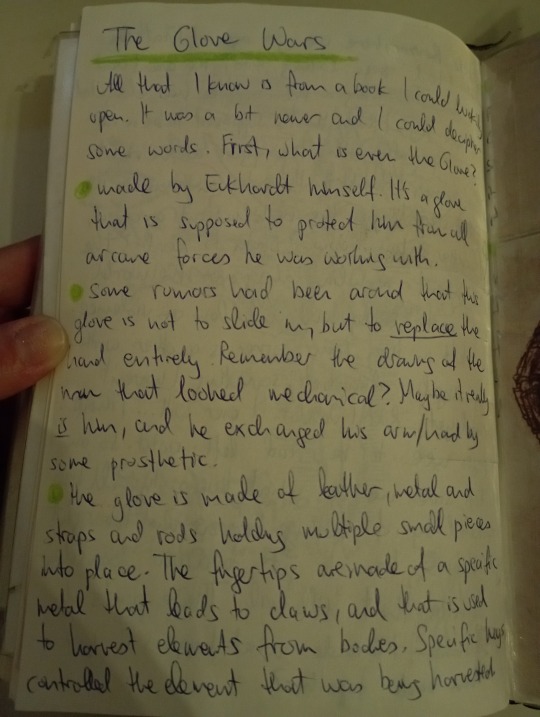 The Glove Wars
All that I know is from a book I could luckily
open. It was a bit newer and I could decipher
some words. First, what is even the Glove?
made by Eckhardt himself. It's a glove
that is supposed to protect him from all
arcane forces he was working with.
Some rumors had been around that this
glove is not to slide in, but to replace the
hand entirely. Remember the drawing of the
man that looked mechanical? Maybe it really
is him, and he exchanged his arm/hand by
some prosthetic.
the glove is made of leather, metal and
straps and rods holding multiple small pieces
into place. The fingertips are made of a specific
metal that leads to claws, and that is used
to harvest elements from bodies. Specific
controlled the element that was being harvested